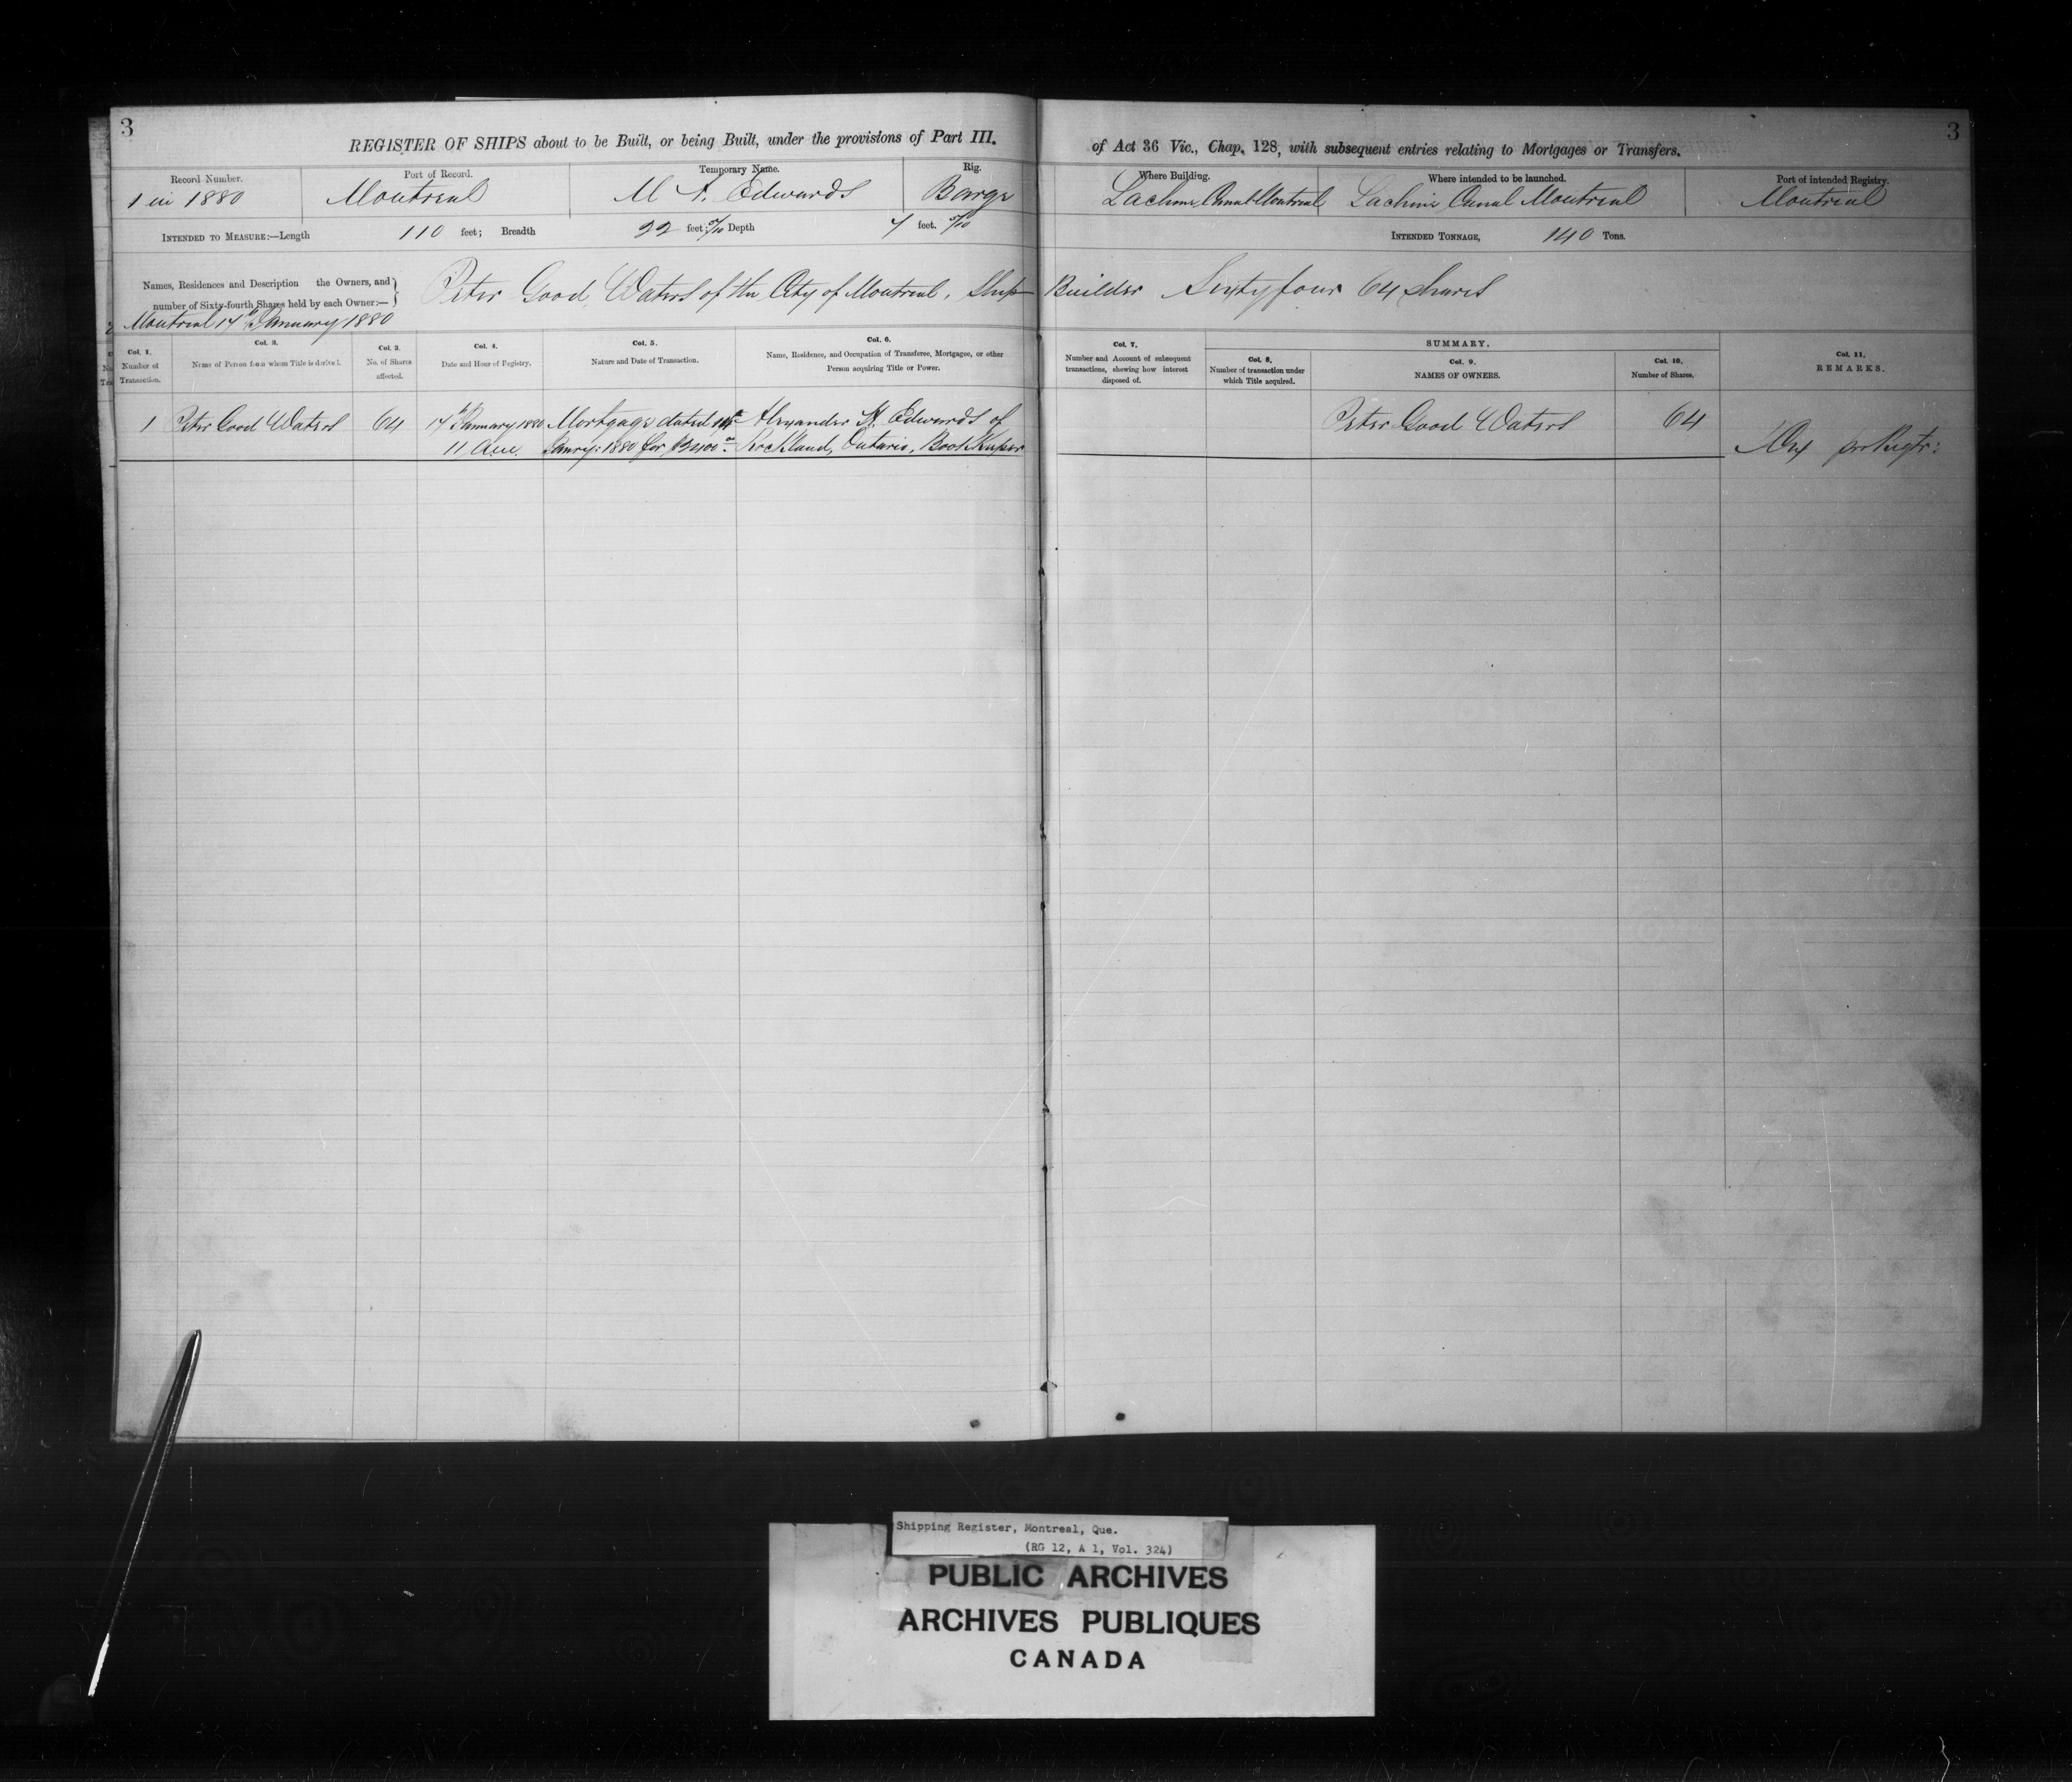 3
REGISTER OF SHIPS about to be Built, or being Built, under the provisions of Part III. of Act 36 Vic., Chap. 128, with subsequent entries relating to Mortgages or Transfers.
3
Record Number. Port of Record. Temporary Name. Rig. Where Building. Where intended to be launched. Port of intended Registry.
1 in 1880 Montreal Edwards Barge Lachine Canal Montreal Lachine Canal Montreal Montreal
INTENDED TO MEASURE:—Length 110 feet; Breadth 22 feet; 0/10 Depth 7 feet. 0/10 INTENDED TONNAGE, 140 Tons.
Names, Residences and Description the Owners, and
number of Sixty-fourth Shares held by each Owner:—
Peter Good Waters of the City of Montreal, Ship Builder Sixty four 64 shares
Montreal 14th January 1880
Col. 1. Number of Transaction.
Col. 2. Name of Person from whom Title is derived.
Col. 3. No. of Shares affected.
Col. 4. Date and Hour of Registry.
Col. 5. Nature and Date of Transaction.
Col. 6. Name, Residence, and Occupation of Transferee, Mortgagee, or other Person acquiring Title or Power.
Col. 7. Number and Account of subsequent transactions, shewing how interest disposed of.
SUMMARY.
Col. 8. Number of transaction under which Title acquired.
Col. 9. NAMES OF OWNERS.
Col. 10. Number of Shares.
Col. 11. REMARKS.
1 Peter Good Waters 64 14th January 1880 Mortgage dated 14th Alexander Edwards of Peter Good Waters 64
11 A.M. 1880 for Rockland, Ontario, Book Keeper
Shipping Register, Montreal, Que.
(RG 12, A 1, Vol. 324)
PUBLIC ARCHIVES
ARCHIVES PUBLIQUES
CANADA